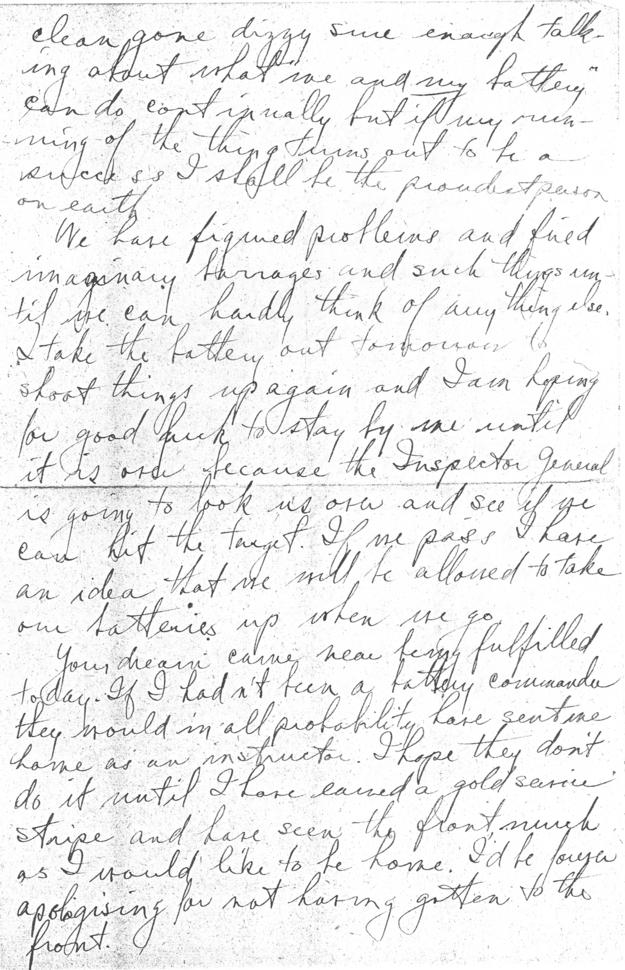 clean gone dizzy sure enough talk-
ing about what "me and my battery"
can do continually but if my run-
ning of the thing turns out to be a
success I shall be the proudest person
on earth
We have figured problems and fired
imaginary barrages and such things un-
til we can hardly think of anything else.
I take the battery out tomorrow to
shoot things up again and I am hoping
for good luck to stay by me until
it is over because the Inspector General
is going to look us over and see if we
can hit the target. If we pass I have
an idea that we will be allowed to take
our batteries up when we go
Your dream came near being fulfilled
today. If I hadn't been a battery commander
they would in all probability have sent me
home as an instructor. I hope they don't
do it until I have earned a gold service
stripe and have seen the front much
as I would like to be home. I'd be forever
apologising for not having gotten to the
front.